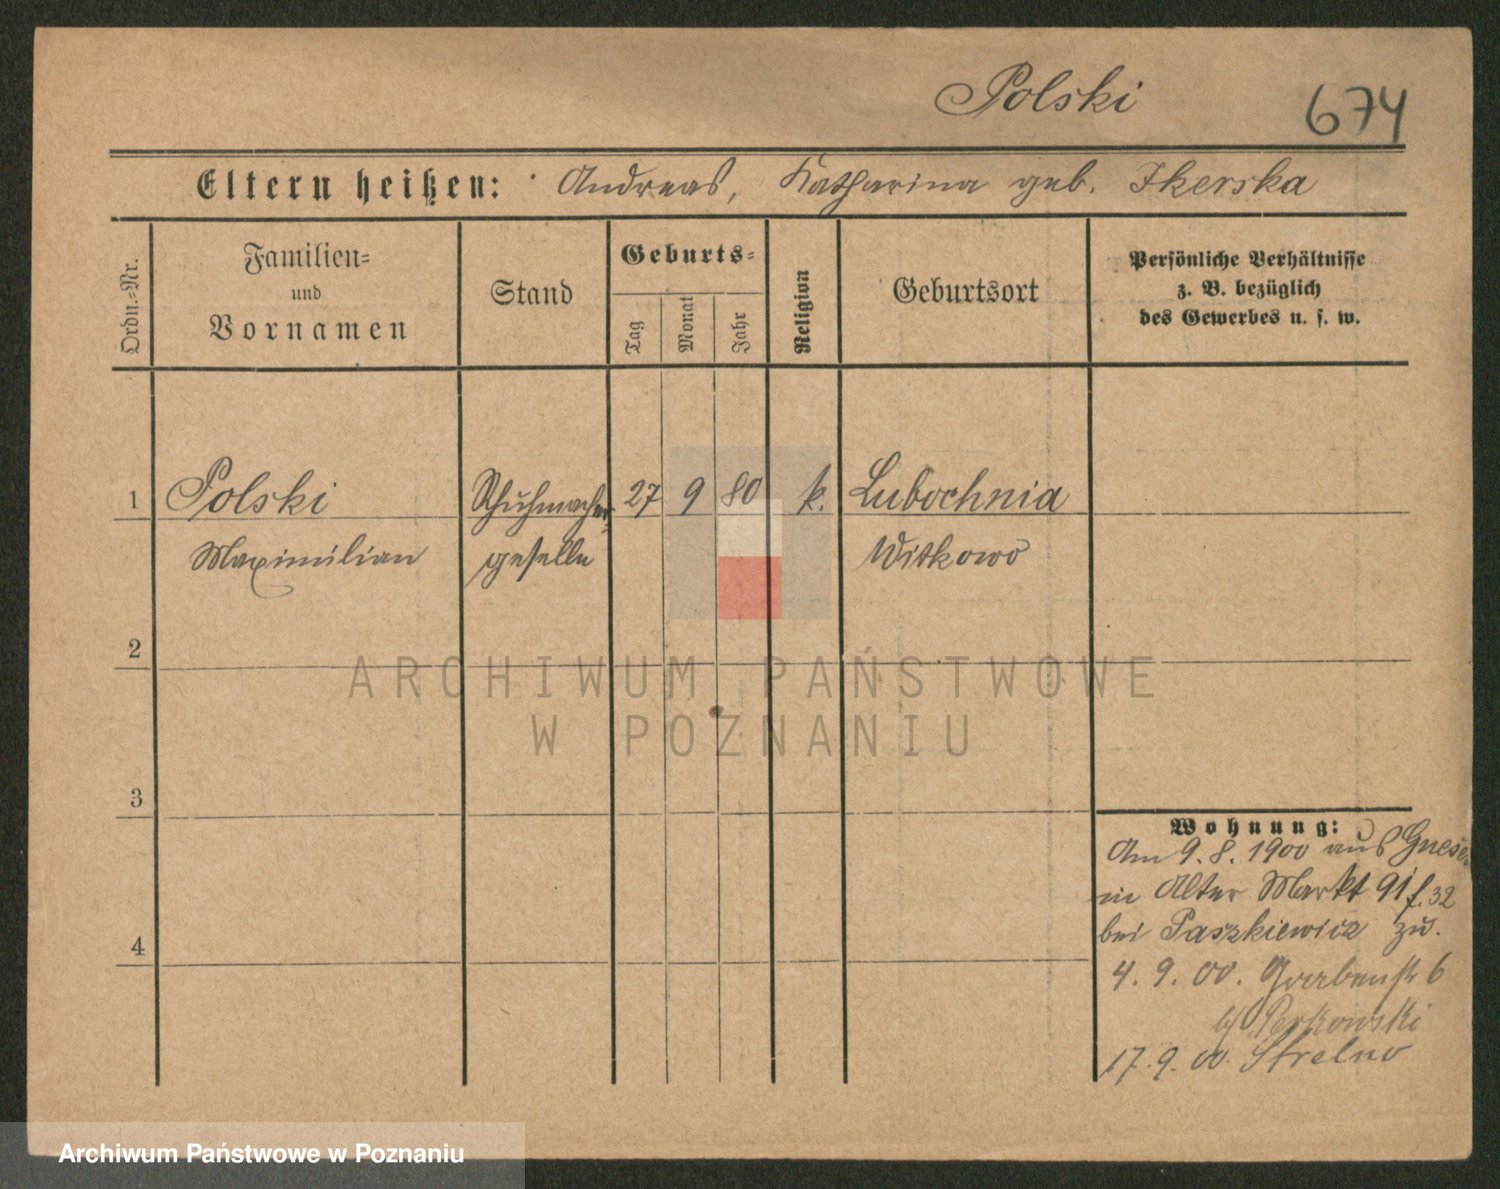 Polski
674
Eltern heißen: Andreas, Katharina geb. Ikerska
Ordn.-Nr.
Familien-
und
Vornamen
Stand
Geburts-
Tag
Monat
Jahr
Religion
Geburtsort
Persönliche Verhältnisse
z. B. bezüglich
des Gewerbes u. s. w.
1 Polski Schuhmacher 27 9 80 k. Lubochnia
Maximilian geselle Witkowo
2
3
4
Wohnung:
Am 9. 8. 1900 aus Gnesen
in Alter Markt 91 f. 32
bei Paszkiewicz zu.
4. 9. 00. Grabenstr 6
b/ Perkowski
17. 9. 00. Strelno
ARCHIWUM PAŃSTWOWE
W POZNANIU
Archiwum Państwowe w Poznaniu